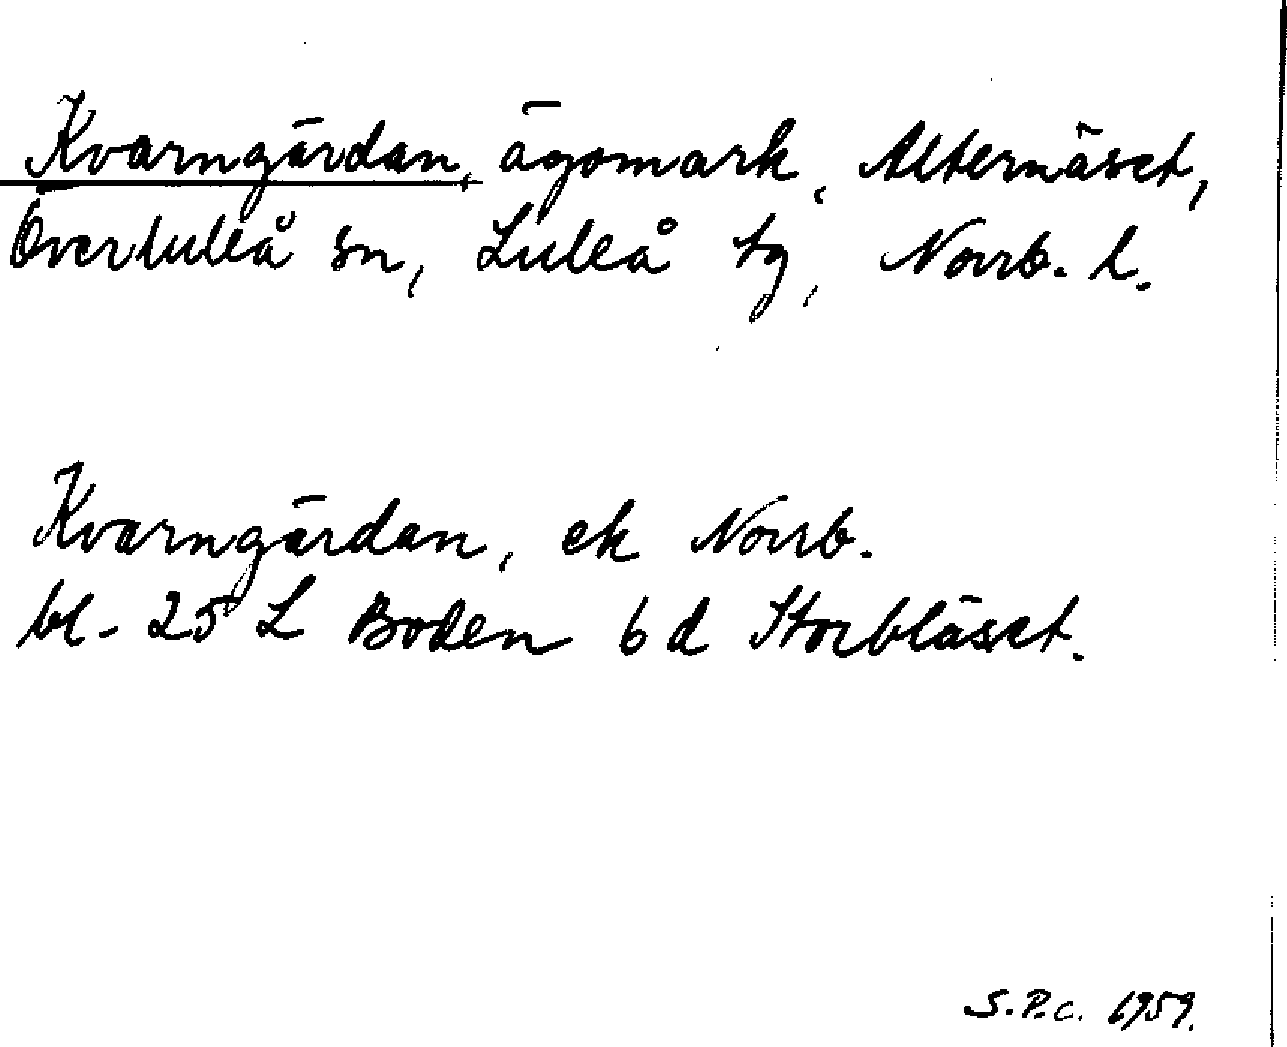 Kvarngärdan, ägomark, Alternäset,
Överluleå sn, Luleå tg, Norrb. l.
Kvarngärdan, ek Norrb.
bl. 25 L Boden 6 d Storbläset.
S.P.c. 1959.